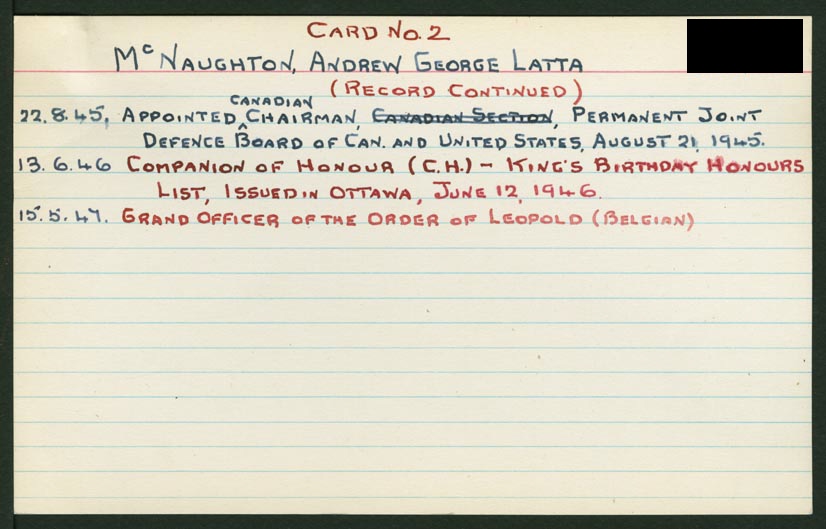 CARD NO. 2
McNAUGHTON, ANDREW GEORGE LATTA
(RECORD CONTINUED)
22.8.45, APPOINTED CANADIAN CHAIRMAN, CANADIAN SECTION, PERMANENT JOINT
DEFENCE BOARD OF CAN. AND UNITED STATES, AUGUST 21, 1945.
13.6.46 COMPANION OF HONOUR (C.H.) - KING'S BIRTHDAY HONOURS
LIST, ISSUED IN OTTAWA, JUNE 12, 1946.
15.5.47. GRAND OFFICER OF THE ORDER OF LEOPOLD (BELGIAN)